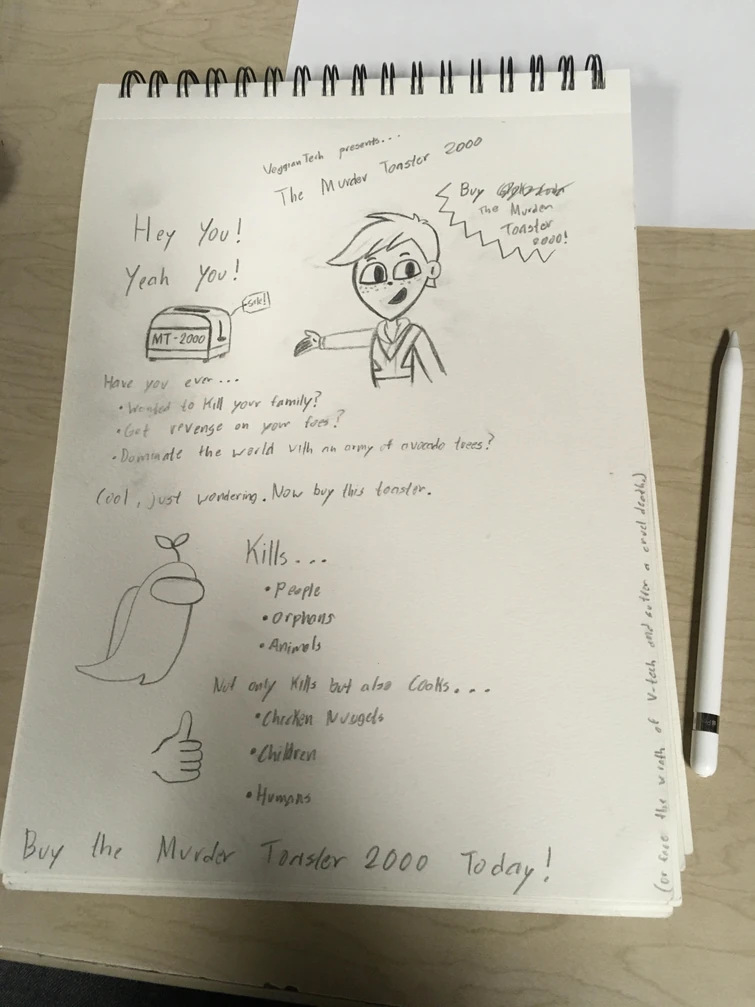 VeggianTech presents...
The Murder Toaster 2000
Buy
The Murder
Toaster
2000!
Hey You!
Yeah You!
MT-2000
Have you ever...
• Wanted to Kill your family?
• Get revenge on your foes?
• Dominate the world with an army of avocado trees?
Cool, just wondering. Now buy this toaster.
Kills...
• People
• Orphans
• Animals
Not only Kills but also Cooks...
• Chicken Nuggets
• Children
• Humans
Buy the Murder Toaster 2000 Today!
(or face the wrath of V-tech and suffer a cruel death)